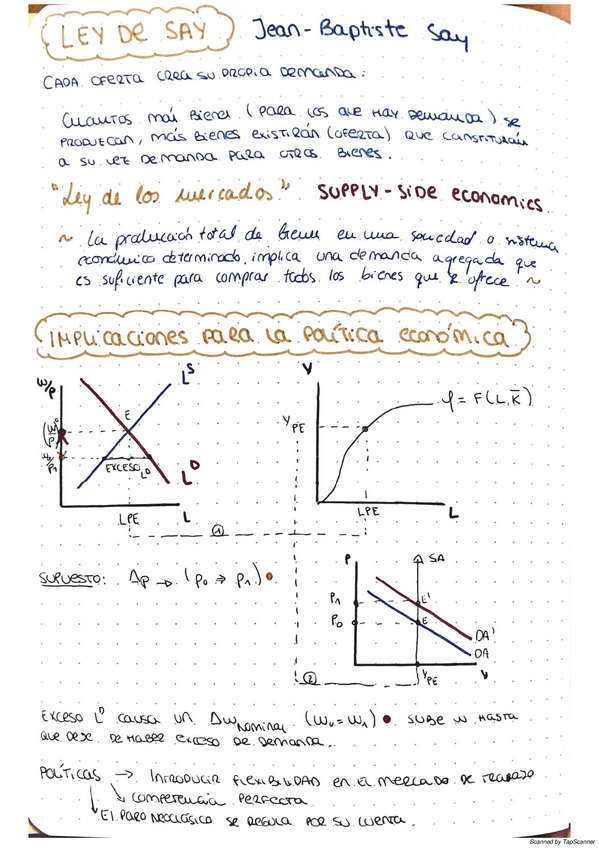 LEY DE SAY Jean-Baptiste Say
CADA OFERTA CREA SU PROPIA DEMANDA:
Cuantos más bienes (para los que hay demanda) se
producan, más bienes existirán (oferta) que constituirán
a su vez demanda para otros bienes.
"Ley de los mercados" SUPPLY-SIDE economics
~ La producción total de bienes en una sociedad o sistema
económico determinado, implica una demanda agregada que
es suficiente para comprar todos los bienes que se ofrece ~
IMPLICACIONES PARA LA POLÍTICA ECONÓMICA
w/p
L^S
E
w/p1
EXCESO L^D
L^D
LPE
L
Y
Y_PE
Y = F(L, K̄)
LPE
L
①
P
SA
P1
E'
P0
E
DA'
DA
Y_PE
Y
②
SUPUESTO: Δp → (p0 → p1)
EXCESO L^D CAUSA UN ΔW nominal (W0 = W1) SUBE W HASTA
QUE DEJE DE HABER EXCESO DE DEMANDA.
POLÍTICAS → INTRODUCIR FLEXIBILIDAD EN EL MERCADO DE TRABAJO
↘ COMPETENCIA PERFECTA
↓ EL PARO NEOCLÁSICO SE REGULA POR SU CUENTA.
Scanned by TapScanner